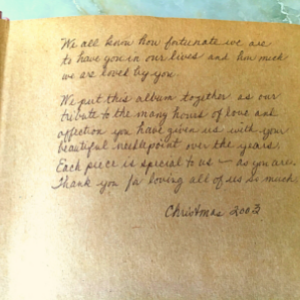 We all know how fortunate we are
to have you in our lives and how much
we are loved by you
We put this album together as our
tribute to the many hours of love and
affection you have given us with your
beautiful needlepoint over the years.
Each piece is special to us — as you are.
Thank you for loving all of us so much.
Christmas 2003